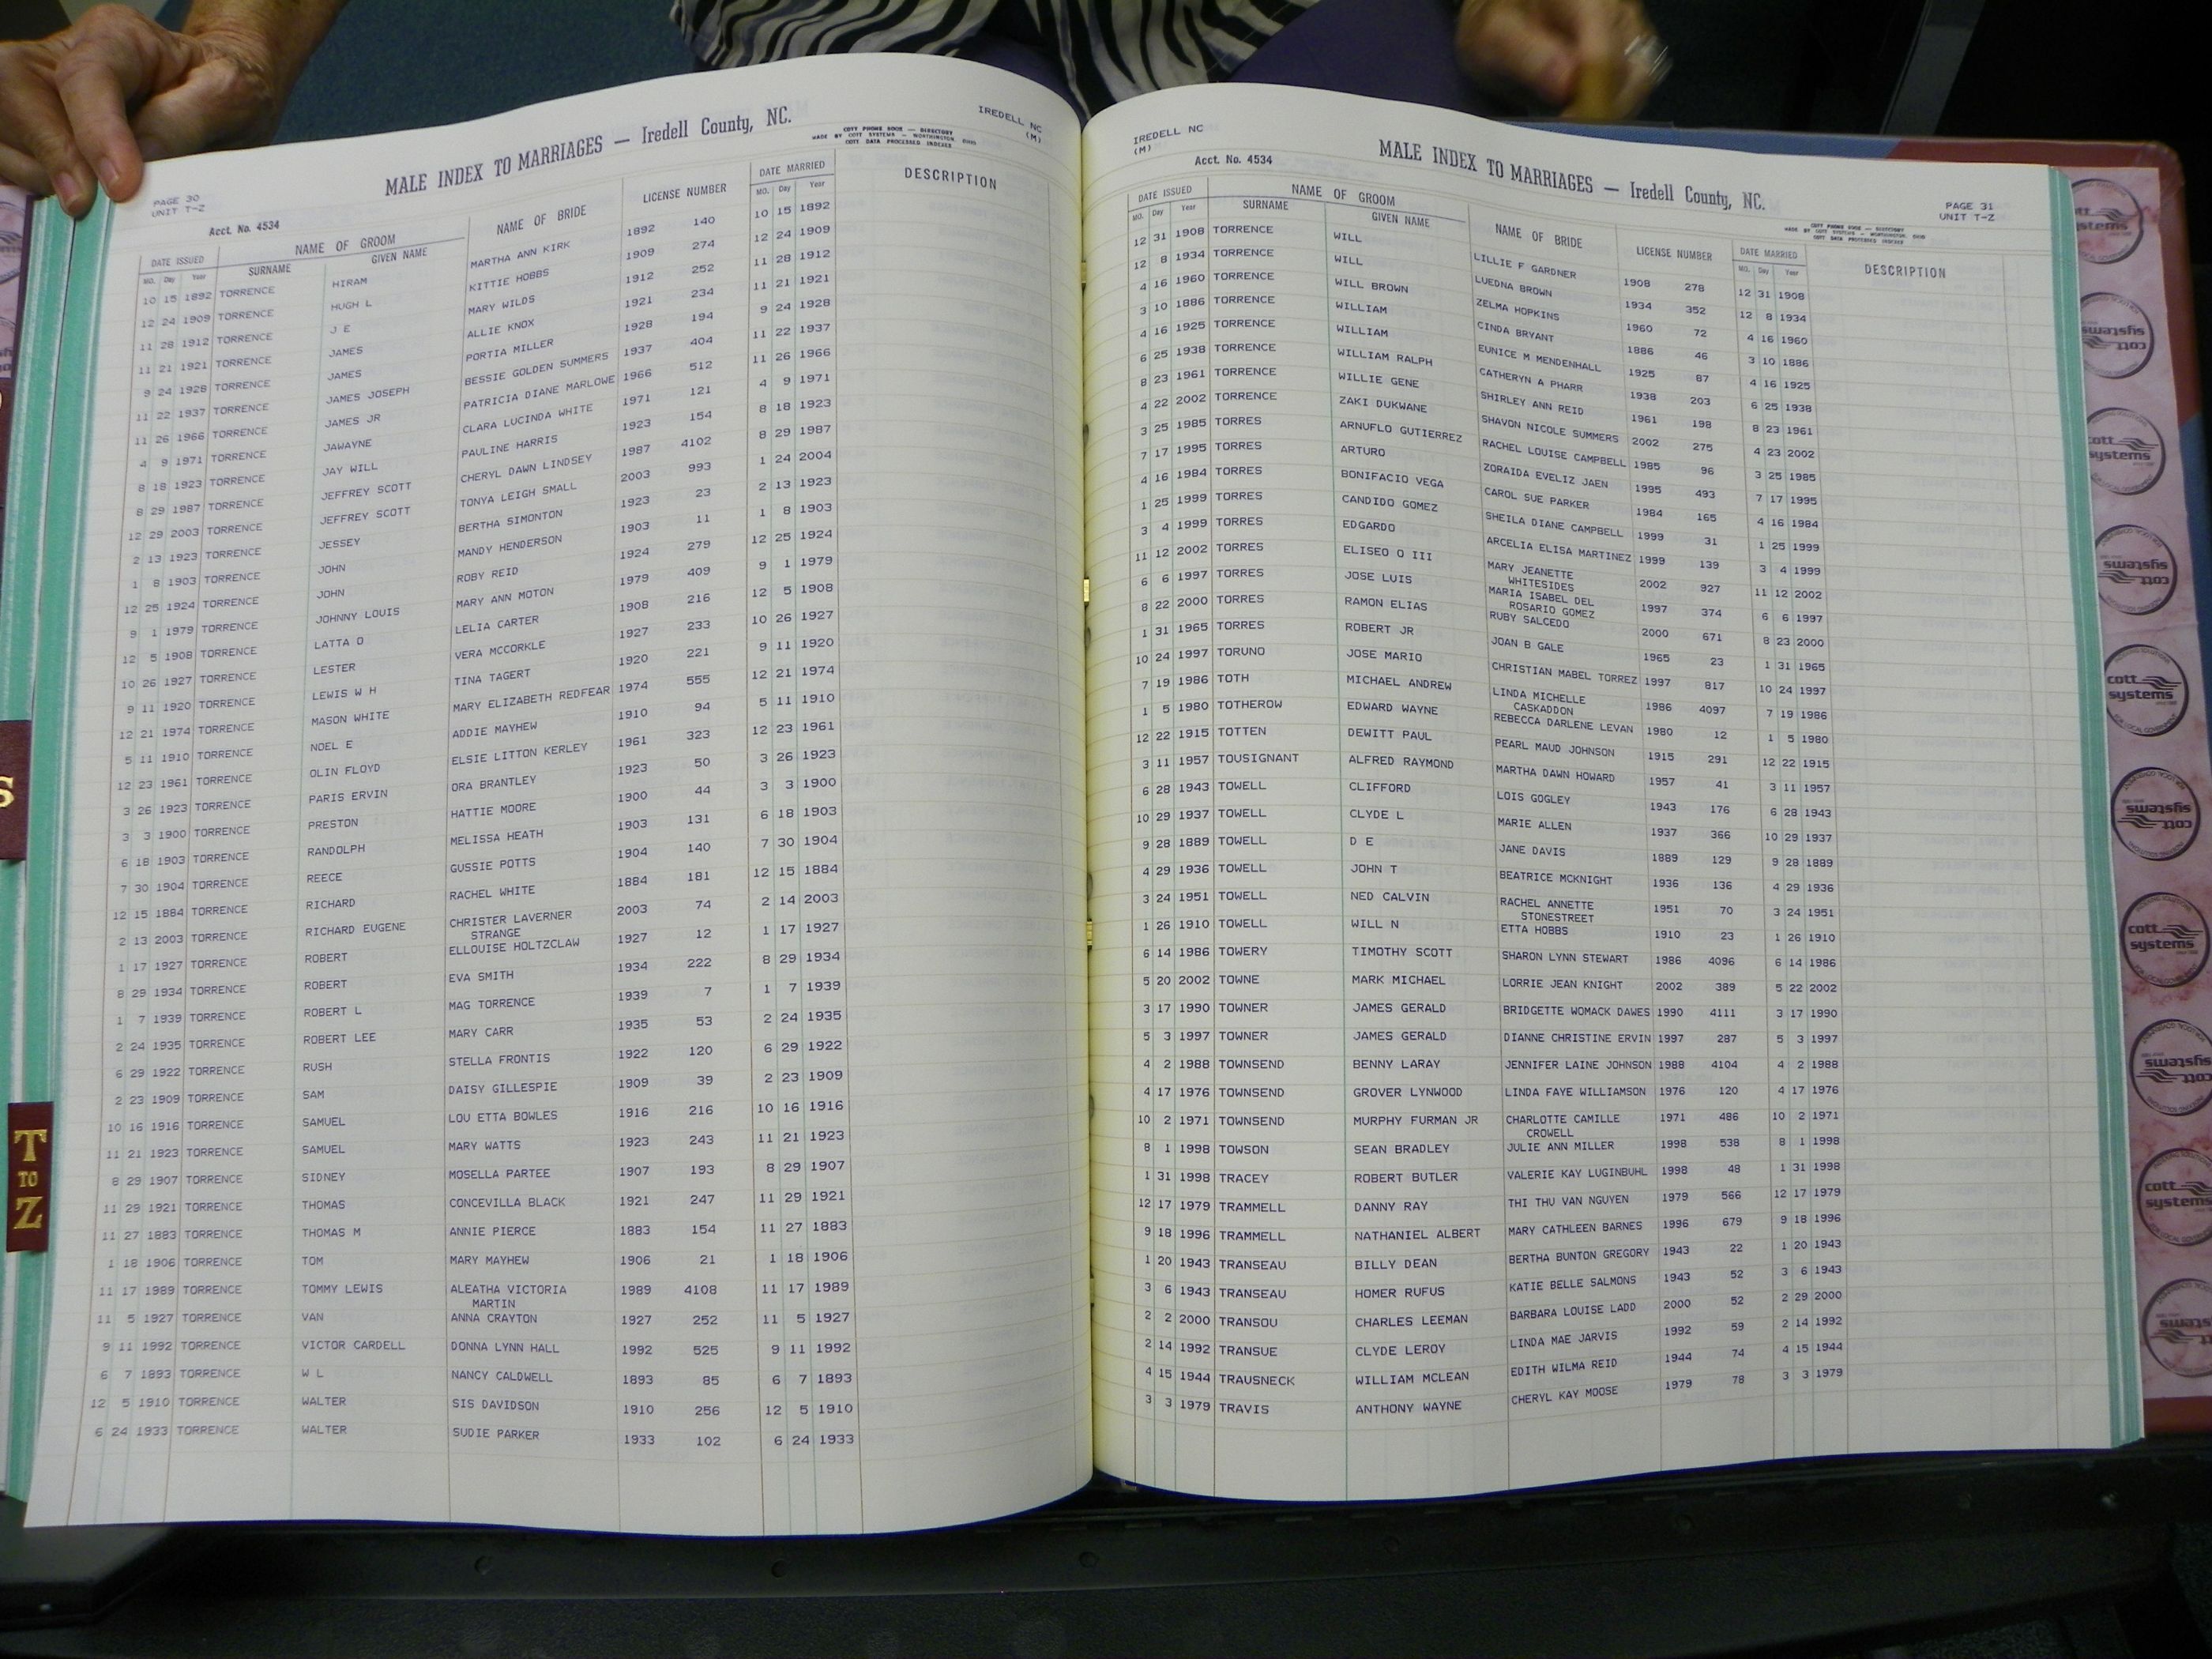 PAGE 30
UNIT T-Z
MALE INDEX TO MARRIAGES — Iredell County, NC.
COTT PHONE BOOK — DIRECTORY
MADE BY COTT SYSTEMS — WORTHINGTON, OHIO
COTT DATA PROCESSED INDEXES
IREDELL NC
(M)
Acct. No. 4534
DATE ISSUED NAME OF GROOM NAME OF BRIDE LICENSE NUMBER DATE MARRIED DESCRIPTION
MO. Day Year SURNAME GIVEN NAME MO. Day Year
10 15 1892 TORRENCE HIRAM MARTHA ANN KIRK 1892 140 10 15 1892
12 24 1909 TORRENCE HUGH L KITTIE HOBBS 1909 274 12 24 1909
11 28 1912 TORRENCE J E MARY WILDS 1912 252 11 28 1912
11 21 1921 TORRENCE JAMES ALLIE KNOX 1921 234 11 21 1921
9 24 1928 TORRENCE JAMES PORTIA MILLER 1928 194 9 24 1928
11 22 1937 TORRENCE JAMES JOSEPH BESSIE GOLDEN SUMMERS 1937 404 11 22 1937
11 26 1966 TORRENCE JAMES JR PATRICIA DIANE MARLOWE 1966 512 11 26 1966
4 9 1971 TORRENCE JAWAYNE CLARA LUCINDA WHITE 1971 121 4 9 1971
8 18 1923 TORRENCE JAY WILL PAULINE HARRIS 1923 154 8 18 1923
8 29 1987 TORRENCE JEFFREY SCOTT CHERYL DAWN LINDSEY 1987 4102 8 29 1987
12 29 2003 TORRENCE JEFFREY SCOTT TONYA LEIGH SMALL 2003 993 1 24 2004
2 13 1923 TORRENCE JESSEY BERTHA SIMONTON 1923 23 2 13 1923
1 8 1903 TORRENCE JOHN MANDY HENDERSON 1903 11 1 8 1903
12 25 1924 TORRENCE JOHN ROBY REID 1924 279 12 25 1924
9 1 1979 TORRENCE JOHNNY LOUIS MARY ANN MOTON 1979 409 9 1 1979
12 5 1908 TORRENCE LATTA O LELIA CARTER 1908 216 12 5 1908
10 26 1927 TORRENCE LESTER VERA MCCORKLE 1927 233 10 26 1927
9 11 1920 TORRENCE LEWIS W H TINA TAGERT 1920 221 9 11 1920
12 21 1974 TORRENCE MASON WHITE MARY ELIZABETH REDFEAR 1974 555 12 21 1974
5 11 1910 TORRENCE NOEL E ADDIE MAYHEW 1910 94 5 11 1910
12 23 1961 TORRENCE OLIN FLOYD ELSIE LITTON KERLEY 1961 323 12 23 1961
3 26 1923 TORRENCE PARIS ERVIN ORA BRANTLEY 1923 50 3 26 1923
3 3 1900 TORRENCE PRESTON HATTIE MOORE 1900 44 3 3 1900
6 18 1903 TORRENCE RANDOLPH MELISSA HEATH 1903 131 6 18 1903
7 30 1904 TORRENCE REECE GUSSIE POTTS 1904 140 7 30 1904
12 15 1884 TORRENCE RICHARD RACHEL WHITE 1884 181 12 15 1884
2 13 2003 TORRENCE RICHARD EUGENE CHRISTER LAVERNER 2003 74 2 14 2003
STRANGE
1 17 1927 TORRENCE ROBERT ELLOUISE HOLTZCLAW 1927 12 1 17 1927
8 29 1934 TORRENCE ROBERT EVA SMITH 1934 222 8 29 1934
1 7 1939 TORRENCE ROBERT L MAG TORRENCE 1939 7 1 7 1939
2 24 1935 TORRENCE ROBERT LEE MARY CARR 1935 53 2 24 1935
6 29 1922 TORRENCE RUSH STELLA FRONTIS 1922 120 6 29 1922
2 23 1909 TORRENCE SAM DAISY GILLESPIE 1909 39 2 23 1909
10 16 1916 TORRENCE SAMUEL LOU ETTA BOWLES 1916 216 10 16 1916
11 21 1923 TORRENCE SAMUEL MARY WATTS 1923 243 11 21 1923
8 29 1907 TORRENCE SIDNEY MOSELLA PARTEE 1907 193 8 29 1907
11 29 1921 TORRENCE THOMAS CONCEVILLA BLACK 1921 247 11 29 1921
11 27 1883 TORRENCE THOMAS M ANNIE PIERCE 1883 154 11 27 1883
1 18 1906 TORRENCE TOM MARY MAYHEW 1906 21 1 18 1906
11 17 1989 TORRENCE TOMMY LEWIS ALEATHA VICTORIA 1989 4108 11 17 1989
MARTIN
11 5 1927 TORRENCE VAN ANNA CRAYTON 1927 252 11 5 1927
9 11 1992 TORRENCE VICTOR CARDELL DONNA LYNN HALL 1992 525 9 11 1992
6 7 1893 TORRENCE W L NANCY CALDWELL 1893 85 6 7 1893
12 5 1910 TORRENCE WALTER SIS DAVIDSON 1910 256 12 5 1910
6 24 1933 TORRENCE WALTER SUDIE PARKER 1933 102 6 24 1933
S
T
TO
Z
IREDELL NC
(M)
Acct. No. 4534
MALE INDEX TO MARRIAGES — Iredell County, NC.
PAGE 31
UNIT T-Z
COTT PHONE BOOK — DIRECTORY
MADE BY COTT SYSTEMS — WORTHINGTON, OHIO
COTT DATA PROCESSED INDEXES
DATE ISSUED NAME OF GROOM NAME OF BRIDE LICENSE NUMBER DATE MARRIED DESCRIPTION
MO. Day Year SURNAME GIVEN NAME MO. Day Year
12 31 1908 TORRENCE WILL LILLIE F GARDNER 1908 278 12 31 1908
12 8 1934 TORRENCE WILL LUEDNA BROWN 1934 352 12 8 1934
4 16 1960 TORRENCE WILL BROWN ZELMA HOPKINS 1960 72 4 16 1960
3 10 1886 TORRENCE WILLIAM CINDA BRYANT 1886 46 3 10 1886
4 16 1925 TORRENCE WILLIAM EUNICE M MENDENHALL 1925 87 4 16 1925
6 25 1938 TORRENCE WILLIAM RALPH CATHERYN A PHARR 1938 203 6 25 1938
8 23 1961 TORRENCE WILLIE GENE SHIRLEY ANN REID 1961 198 8 23 1961
4 22 2002 TORRENCE ZAKI DUKWANE SHAVON NICOLE SUMMERS 2002 275 4 23 2002
3 25 1985 TORRES ARNUFLO GUTIERREZ RACHEL LOUISE CAMPBELL 1985 96 3 25 1985
7 17 1995 TORRES ARTURO ZORAIDA EVELIZ JAEN 1995 493 7 17 1995
4 16 1984 TORRES BONIFACIO VEGA CAROL SUE PARKER 1984 165 4 16 1984
1 25 1999 TORRES CANDIDO GOMEZ SHEILA DIANE CAMPBELL 1999 31 1 25 1999
3 4 1999 TORRES EDGARDO ARCELIA ELISA MARTINEZ 1999 139 3 4 1999
11 12 2002 TORRES ELISEO O III MARY JEANETTE 2002 927 11 12 2002
WHITESIDES
6 6 1997 TORRES JOSE LUIS MARIA ISABEL DEL 1997 374 6 6 1997
ROSARIO GOMEZ
8 22 2000 TORRES RAMON ELIAS RUBY SALCEDO 2000 671 8 23 2000
1 31 1965 TORRES ROBERT JR JOAN B GALE 1965 23 1 31 1965
10 24 1997 TORUNO JOSE MARIO CHRISTIAN MABEL TORREZ 1997 817 10 24 1997
7 19 1986 TOTH MICHAEL ANDREW LINDA MICHELLE 1986 4097 7 19 1986
CASKADDON
1 5 1980 TOTHEROW EDWARD WAYNE REBECCA DARLENE LEVAN 1980 12 1 5 1980
12 22 1915 TOTTEN DEWITT PAUL PEARL MAUD JOHNSON 1915 291 12 22 1915
3 11 1957 TOUSIGNANT ALFRED RAYMOND MARTHA DAWN HOWARD 1957 41 3 11 1957
6 28 1943 TOWELL CLIFFORD LOIS GOGLEY 1943 176 6 28 1943
10 29 1937 TOWELL CLYDE L MARIE ALLEN 1937 366 10 29 1937
9 28 1889 TOWELL D E JANE DAVIS 1889 129 9 28 1889
4 29 1936 TOWELL JOHN T BEATRICE MCKNIGHT 1936 136 4 29 1936
3 24 1951 TOWELL NED CALVIN RACHEL ANNETTE 1951 70 3 24 1951
STONESTREET
1 26 1910 TOWELL WILL N ETTA HOBBS 1910 23 1 26 1910
6 14 1986 TOWERY TIMOTHY SCOTT SHARON LYNN STEWART 1986 4096 6 14 1986
5 20 2002 TOWNE MARK MICHAEL LORRIE JEAN KNIGHT 2002 389 5 22 2002
3 17 1990 TOWNER JAMES GERALD BRIDGETTE WOMACK DAWES 1990 4111 3 17 1990
5 3 1997 TOWNER JAMES GERALD DIANNE CHRISTINE ERVIN 1997 287 5 3 1997
4 2 1988 TOWNSEND BENNY LARAY JENNIFER LAINE JOHNSON 1988 4104 4 2 1988
4 17 1976 TOWNSEND GROVER LYNWOOD LINDA FAYE WILLIAMSON 1976 120 4 17 1976
10 2 1971 TOWNSEND MURPHY FURMAN JR CHARLOTTE CAMILLE 1971 486 10 2 1971
CROWELL
8 1 1998 TOWSON SEAN BRADLEY JULIE ANN MILLER 1998 538 8 1 1998
1 31 1998 TRACEY ROBERT BUTLER VALERIE KAY LUGINBUHL 1998 48 1 31 1998
12 17 1979 TRAMMELL DANNY RAY THI THU VAN NGUYEN 1979 566 12 17 1979
9 18 1996 TRAMMELL NATHANIEL ALBERT MARY CATHLEEN BARNES 1996 679 9 18 1996
1 20 1943 TRANSEAU BILLY DEAN BERTHA BUNTON GREGORY 1943 22 1 20 1943
3 6 1943 TRANSEAU HOMER RUFUS KATIE BELLE SALMONS 1943 52 3 6 1943
2 2 2000 TRANSOU CHARLES LEEMAN BARBARA LOUISE LADD 2000 52 2 29 2000
2 14 1992 TRANSUE CLYDE LEROY LINDA MAE JARVIS 1992 59 2 14 1992
4 15 1944 TRAUSNECK WILLIAM MCLEAN EDITH WILMA REID 1944 74 4 15 1944
3 3 1979 TRAVIS ANTHONY WAYNE CHERYL KAY MOOSE 1979 78 3 3 1979
cott
systems
cott
systems
cott
systems
cott
systems
cott
systems